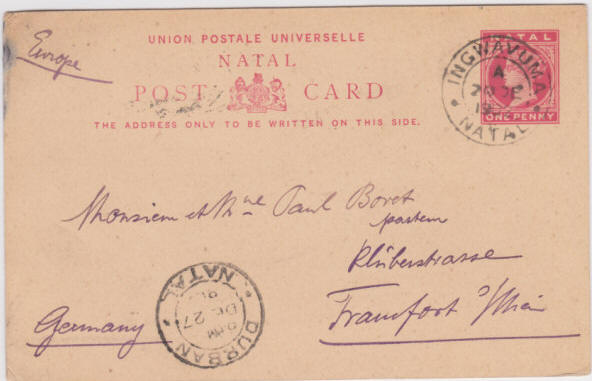 Europe
UNION POSTALE UNIVERSELLE
NATAL
POST CARD
THE ADDRESS ONLY TO BE WRITTEN ON THIS SIDE.
NATAL
ONE PENNY
INGWAVUMA
A
NATAL
Monsieur et Mme Paul Boret
pasteur
Klüberstrasse
Francfort s/Mein
Germany
DURBAN
PM
DE 27
NATAL